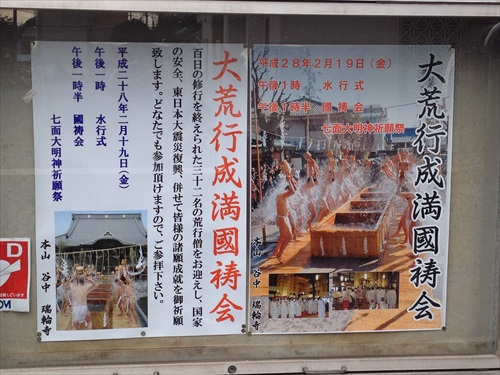 大荒行成満國祷会
百日の修行を終えられた三十二名の荒行僧をお迎えし、国家
の安全、東日本大震災復興、併せて皆様の諸願成就を御祈願
致します。どなたでも参加頂けますので、ご参拝下さい。
平成二十八年二月十九日(金)
午後一時 水行式
午後一時半 國祷会
七面大明神祈願祭
本山 谷中 瑞輪寺
大荒行成満國祷会
平成28年2月19日(金)
午後1時 水行式
午後1時半 國祷会
七面大明神祈願祭
本山 谷中 瑞輪寺
D